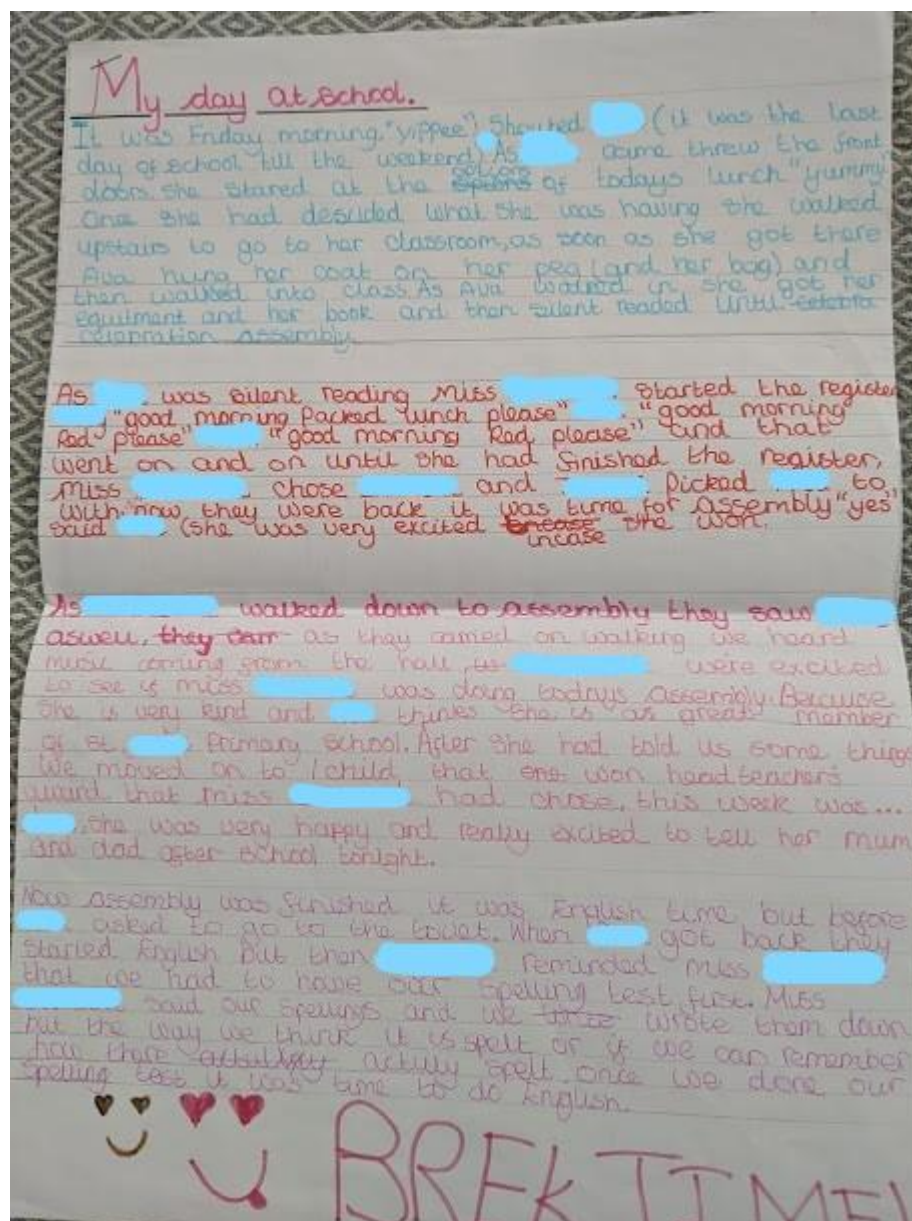 My day at school.
It was Friday morning. "yippee" Shouted (it was the last
day of school till the weekend) As came threw the front
doors she stared at the options of todays lunch "yummy"
One she had desided what she was having she walked
upstairs to go to her classroom, as soon as she got there
Ava hung her coat on her peg (and her bag) and
then walked into class. As Ava walked in she got her
equitment and her book and then silent readed until celebra
celebration assembly.
As was silent reading Miss started the register
"good morning Packed lunch please" "good morning
Red please" "good morning Red please" and that
went on and on until she had finished the register,
Miss chose and Picked to
with now they were back it was time for assembly "yes"
said (she was very excited incase she won.
As walked down to assembly they saw
aswell. they carr as they carried on walking we heard
music coming from the hall, as were excited
to see if miss was doing todays assembly. Because
She is very kind and thinks she is as great member
of st Primary School. After she had told us some things
We moved on to 1 child that won headteachers
award that miss had chose, this week was...
, she was very happy and really excited to tell her mum
and dad after school tonight.
Now assembly was finished it was English time but before
asked to go to the toilet. When got back they
started English but then reminded miss
that we had to have our spelling test first. Miss
said our spellings and we wrote them down
but the way we think it is spelt or if we can remember
how there actully spelt. once we done our
spelling test it was time to do English.
BREK TIME!